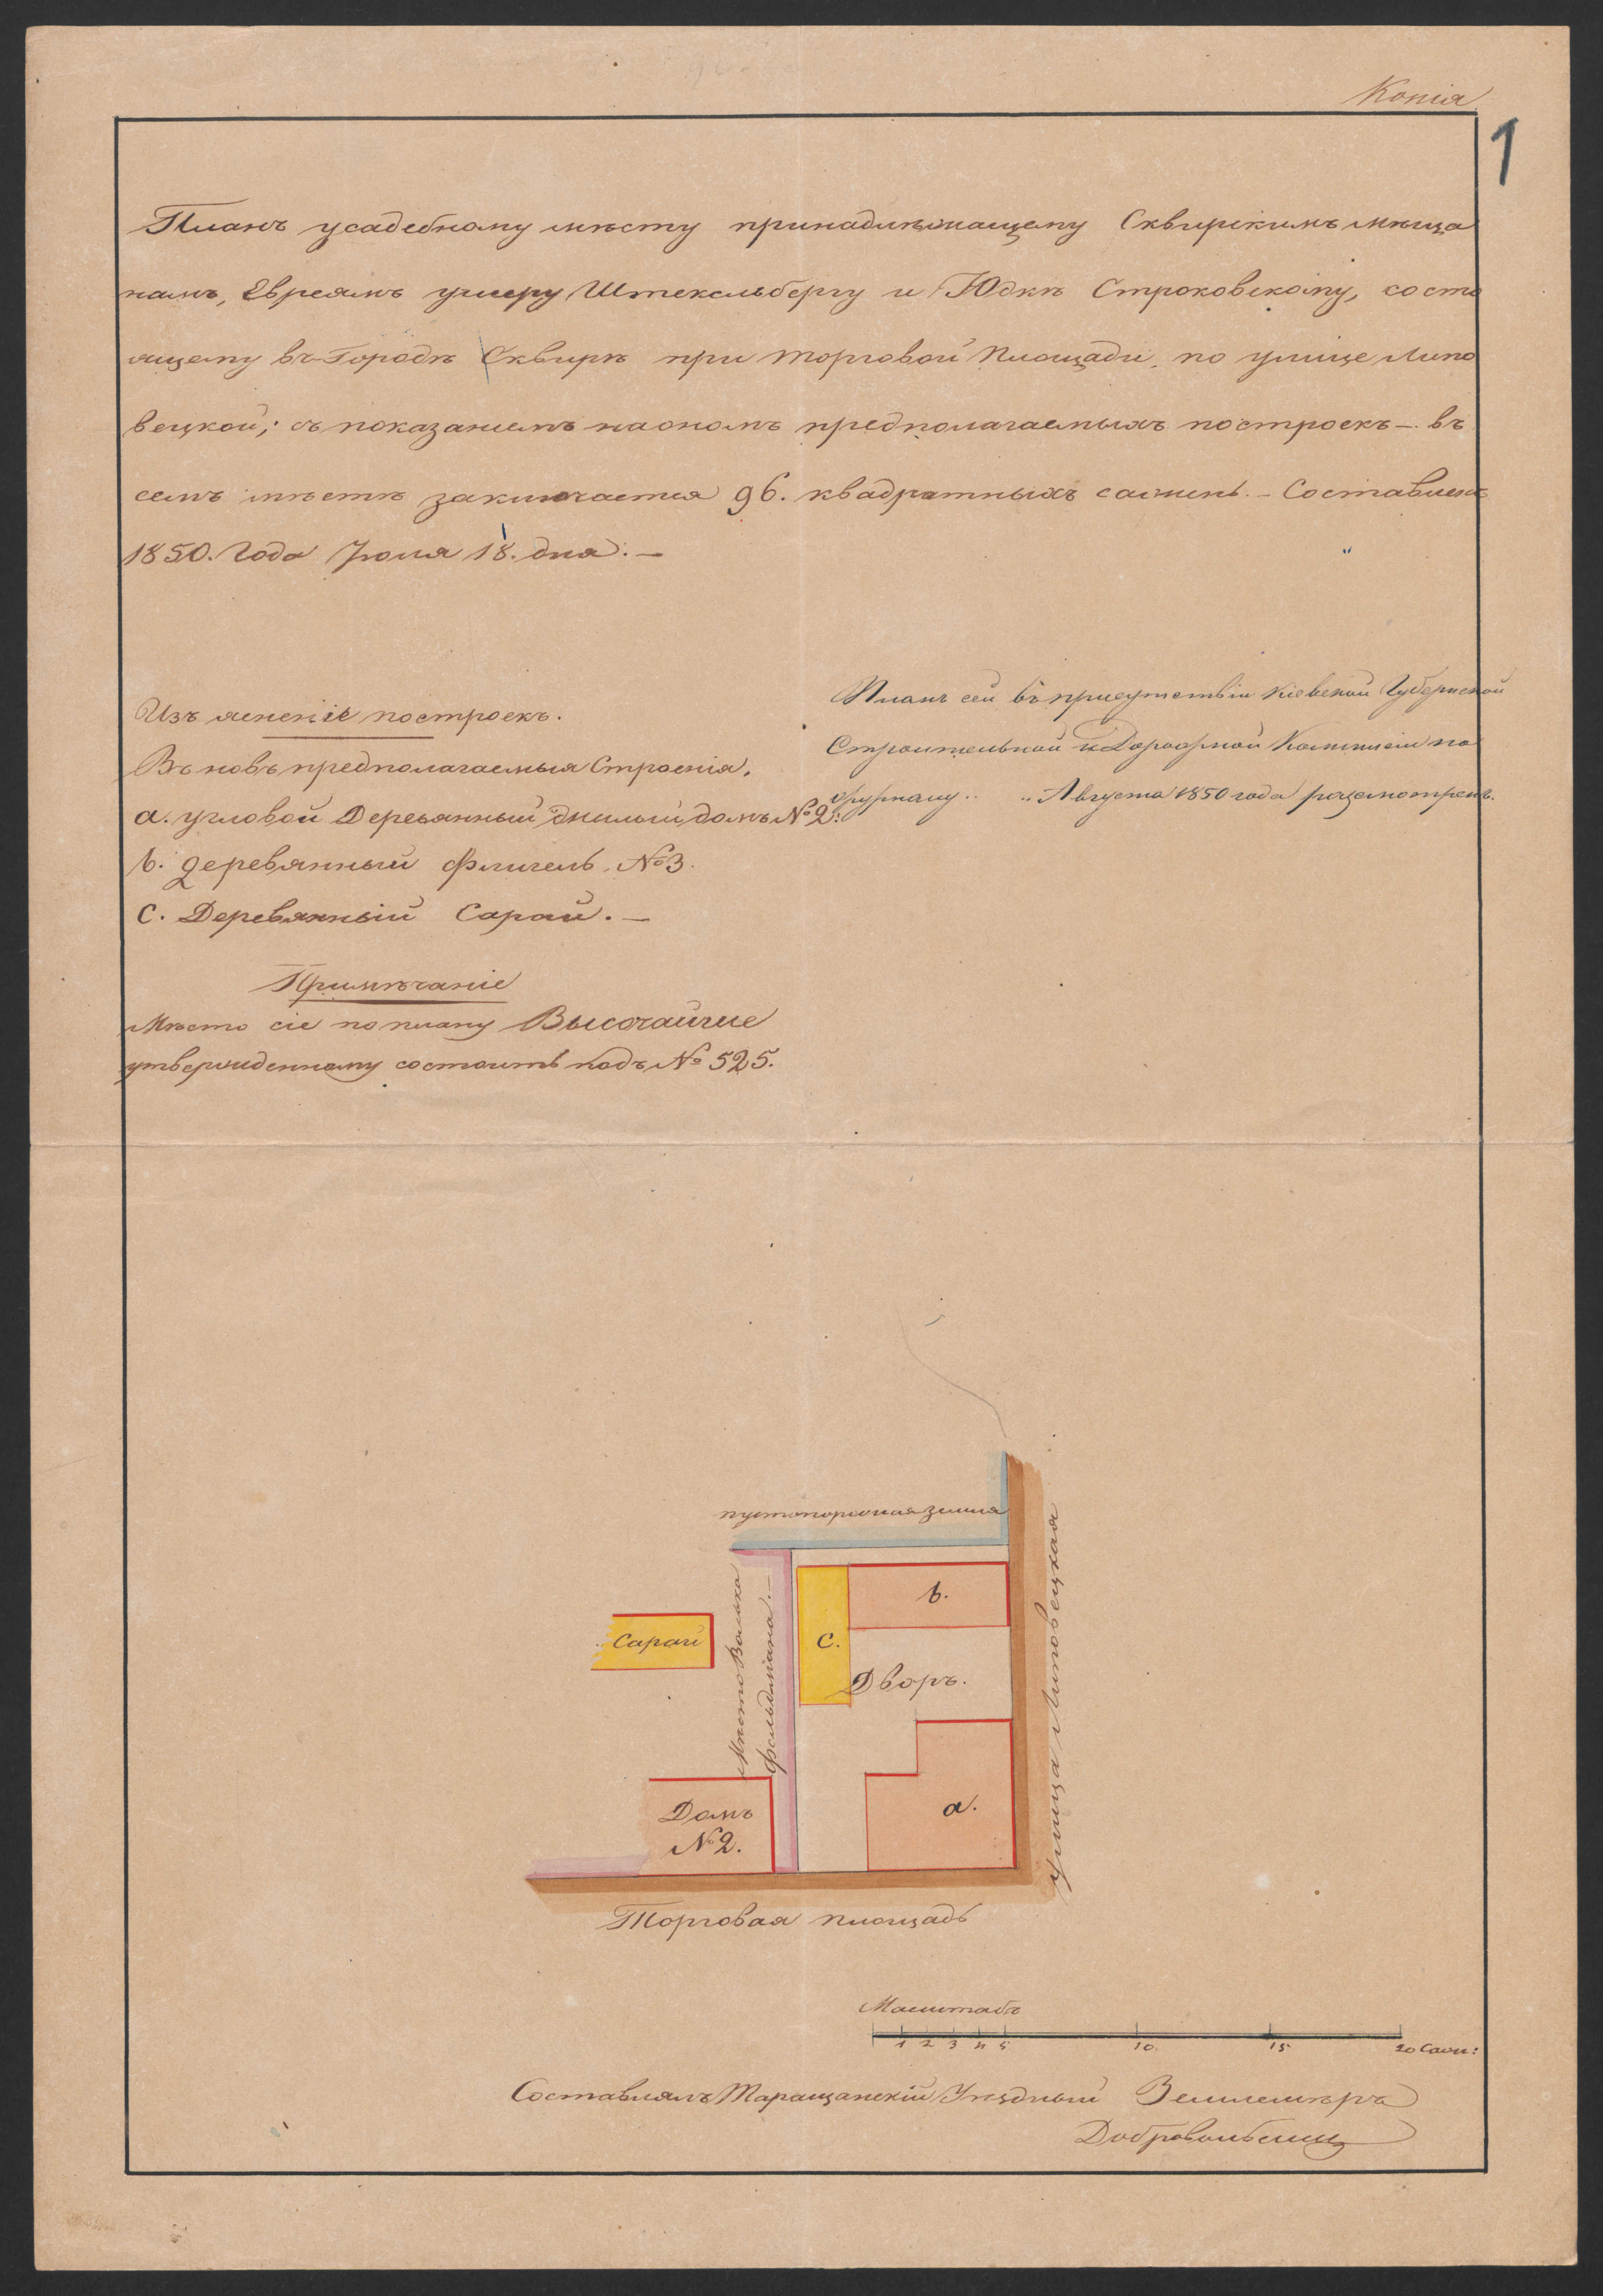 Копія
1
Планъ усадебному мѣсту принадлѣжащему Сквирскимъ мѣща
намъ, Евреямъ Ушеру Штекельбергу и Юдкѣ Строковскому, состо
ящему въ Городѣ Сквирѣ при торговой Площади, по улице Липо
вецкой; съ показаніемъ на ономъ предполагаемыхъ построекъ — въ
семъ мѣстѣ заключается 96. квадратныхъ сажень. — Составленъ
1850. Года Іюля 18. дня. —
Изъ ясненіе построекъ.
Въ новь предполагаемыя Строенія.
а. угловой Деревянный жилый домъ № 2:
b. деревянный флигель. № 3.
с. Деревянный Сарай. —
Примѣчаніе
Мѣсто сіе по плану Высочайше
утвержденному состоитъ подъ № 525.
Планъ сей въ присутствіи Кіевской Губернской
Строительной и Дорожной Коммисіи по
журналу „ „ Августа 1850 года разсмотренъ.
пустопорожная земля
Сарай
Мѣсто Волька
Фельдмана. —
b.
с.
Дворъ.
а.
Домъ
№ 2.
улица Липовецкая
Торговая площадь
Масштабъ
1 2 3 4 5 10. 15 20 Саж:
Составлялъ Таращанскій Уѣздный Землемѣръ